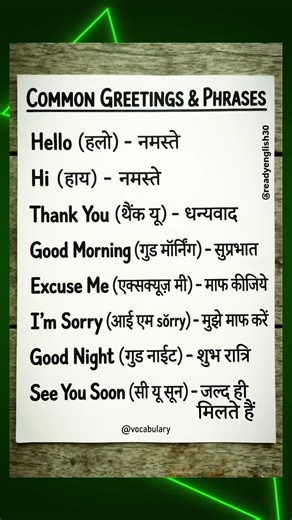 COMMON GREETINGS & PHRASES
@readyenglish30
Hello (हलो) - नमस्ते
Hi (हाय) - नमस्ते
Thank You (थैंक यू) - धन्यवाद
Good Morning (गुड मॉर्निंग) - सुप्रभात
Excuse Me (एक्सक्यूज़ मी) - माफ कीजिये
I'm Sorry (आई एम sŏrry) - मुझे माफ करें
Good Night (गुड नाईट) - शुभ रात्रि
See You Soon (सी यू सून) - जल्द ही
मिलते हैं
@vocabulary